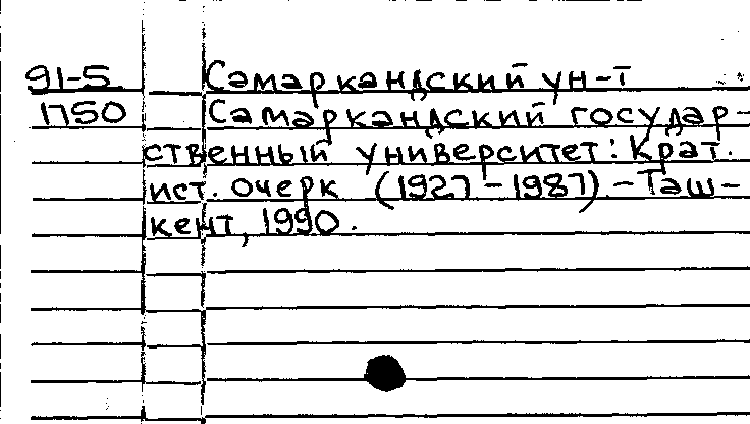 91-5 Самаркандский ун-т
1750 Самаркандский государ-
ственный университет: Крат.
ист. очерк (1927-1987)-Таш-
кент, 1990.